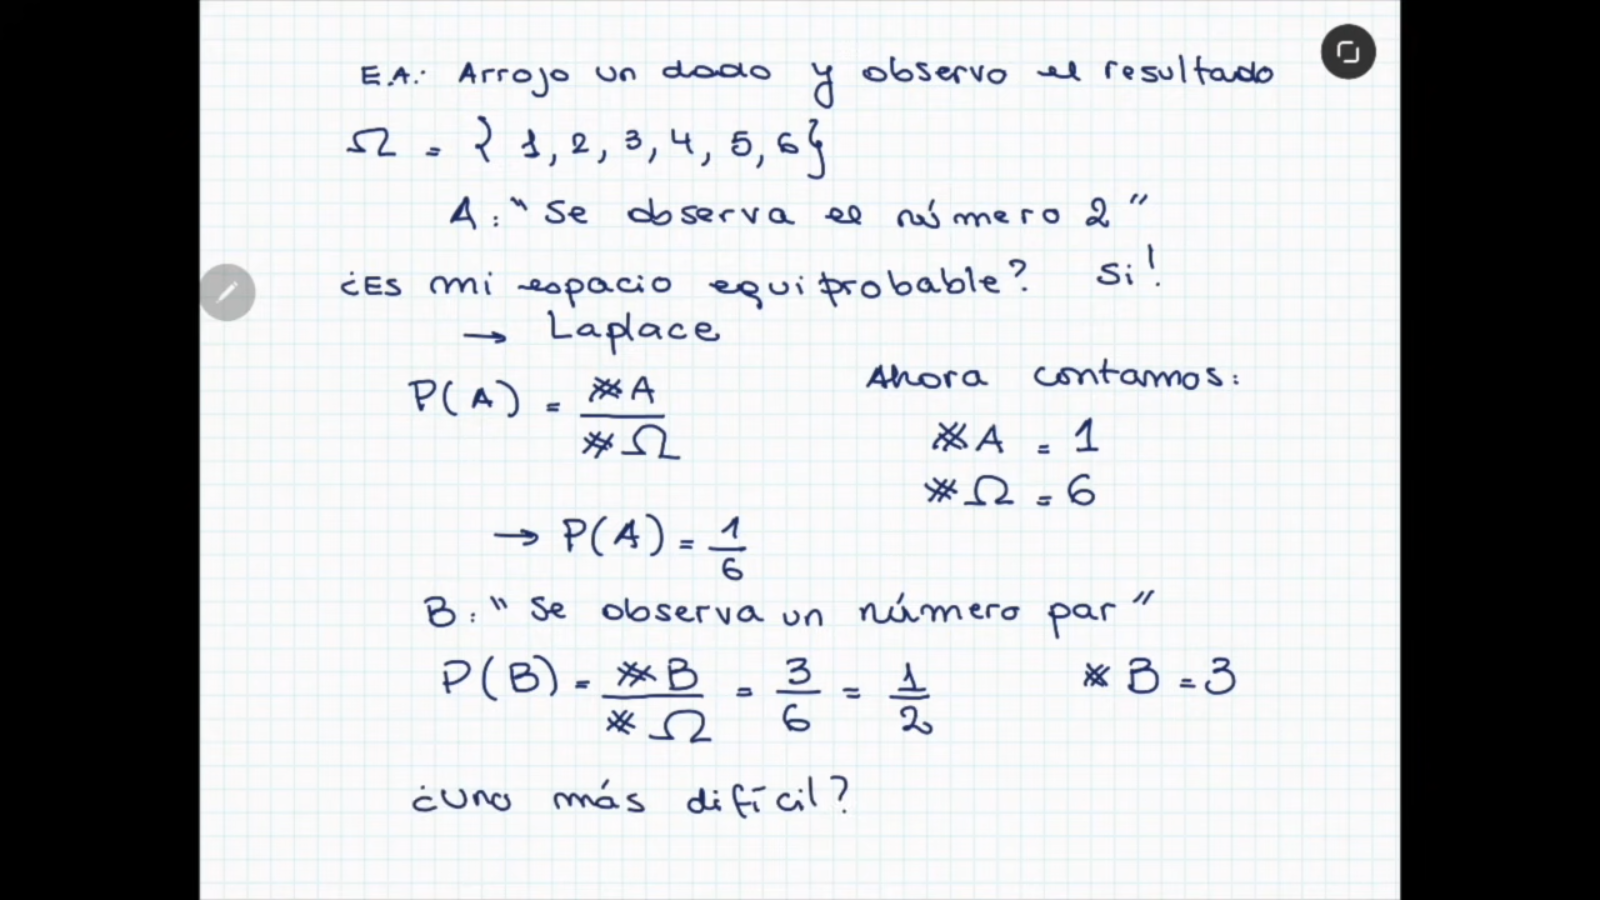 E.A.: Arrojo un dado y observo el resultado
Ω = { 1, 2, 3, 4, 5, 6 }
A: "Se observa el número 2"
¿Es mi espacio equiprobable? Si!
→ Laplace
P(A) = #A / #Ω
Ahora contamos:
#A = 1
#Ω = 6
→ P(A) = 1/6
B: "Se observa un número par"
P(B) = #B / #Ω = 3/6 = 1/2
#B = 3
¿Uno más difícil?